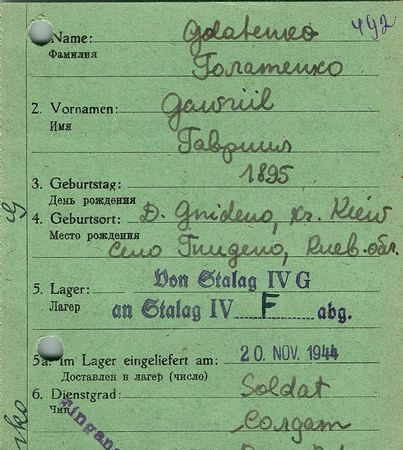 Name: Golatenko 492
Фамилия Голатенко
2. Vornamen: Gawriil
Имя Гавриил
3. Geburtstag: 1895
День рождения
4. Geburtsort: D. Gnideno, kr. Kiew
Место рождения
село Гнидено, Киев. обл.
5. Lager: Von Stalag IV G
Лагерь an Stalag IV F abg.
5a. Im Lager eingeliefert am: 20. NOV. 1944
Доставлен в лагерь (число)
6. Dienstgrad: Soldat
Чин Солдат